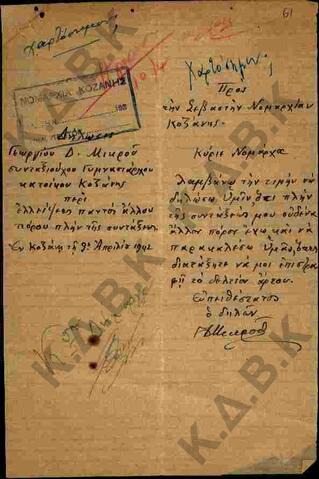 61
Χαρτόσημον
ΝΟΜΑΡΧΙΑ ΚΟΖΑΝΗΣ
Δήλωσις
Γεωργίου Δ. Μικρού
συνταξιούχου Γυμνασιάρχου
κατοίκου Κοζάνης
περί
ελλείψεως παντός άλλου
πόρου πλην της συντάξεως.
Εν Κοζάνη τη 9η Απριλίου 1942
Χαρτόσημον
Προς
την Σεβαστήν Νομαρχίαν
Κοζάνης
Κύριε Νομάρχα
Λαμβάνω την τιμήν να
δηλώσω υμίν, ότι πλην
της συντάξεώς μου ουδένα
άλλον πόρον έχω και να
παρακαλέσω υμάς, όπως
διατάξητε να μοι επιστρα-
φή το δελτίον άρτου.
Ευπειθέστατος
ο δηλών
ΔΜικρός
Κ.Δ.Β.Κ
Κ.Δ.Β.Κ
Κ.Δ.Β.Κ